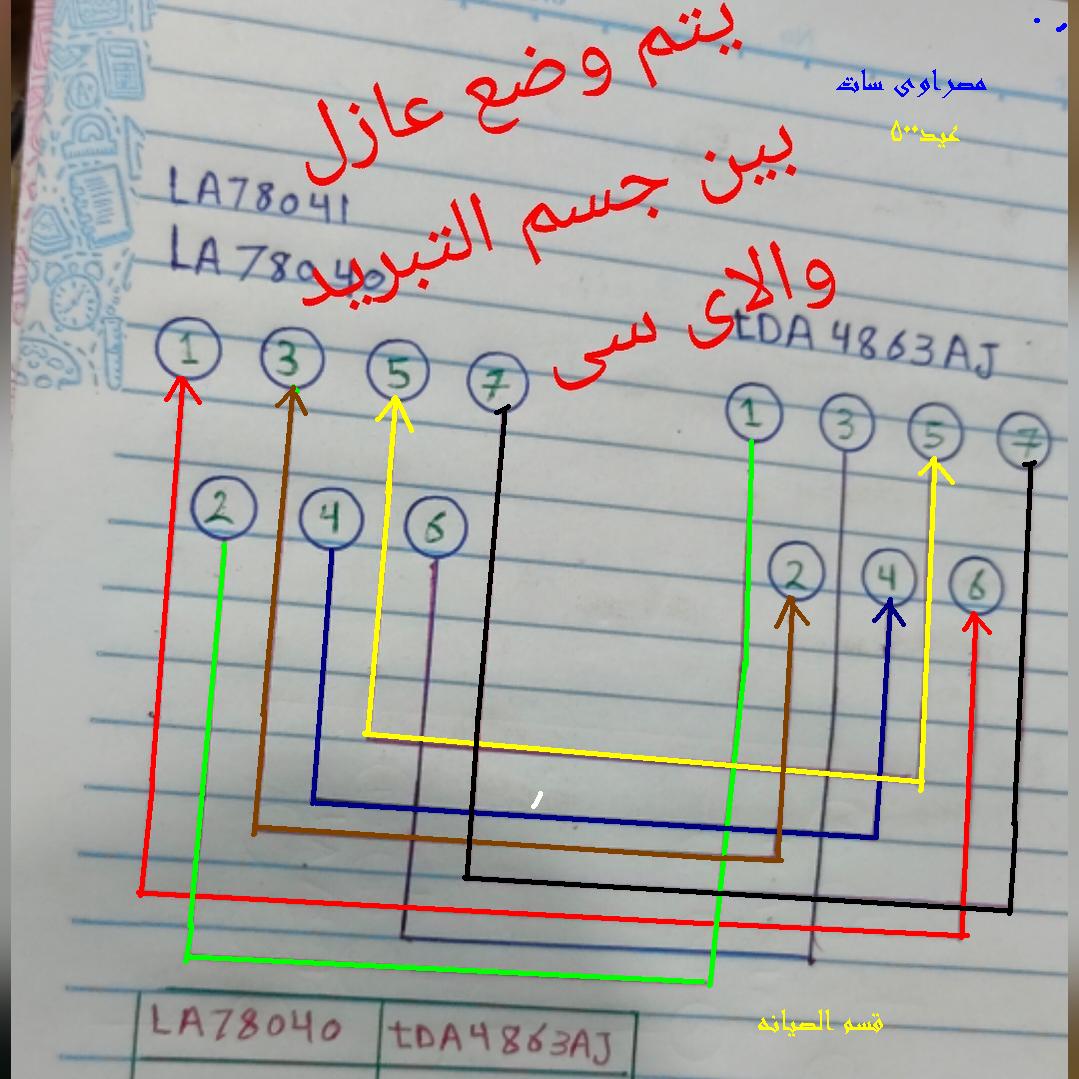 يتم وضع عازل
بين جسم التبريد
والاى سى
مصراوى سات
عيد٥٠٠
LA78041
LA78040
tDA4863AJ
1 3 5 7
2 4 6
1 3 5 7
2 4 6
LA78040 tDA4863AJ
قسم الصيانه